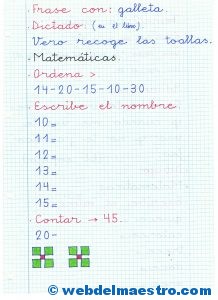 . Frase con: galleta.
. Dictado: (en el libro).
Vero recoge las toallas.
. Matemáticas
. Ordena >.
14-20-15-10-30
. Escribe el nombre.
10=
11=
12=
13=
14=
15=
. Contar → 45.
20-
© webdelmaestro.com